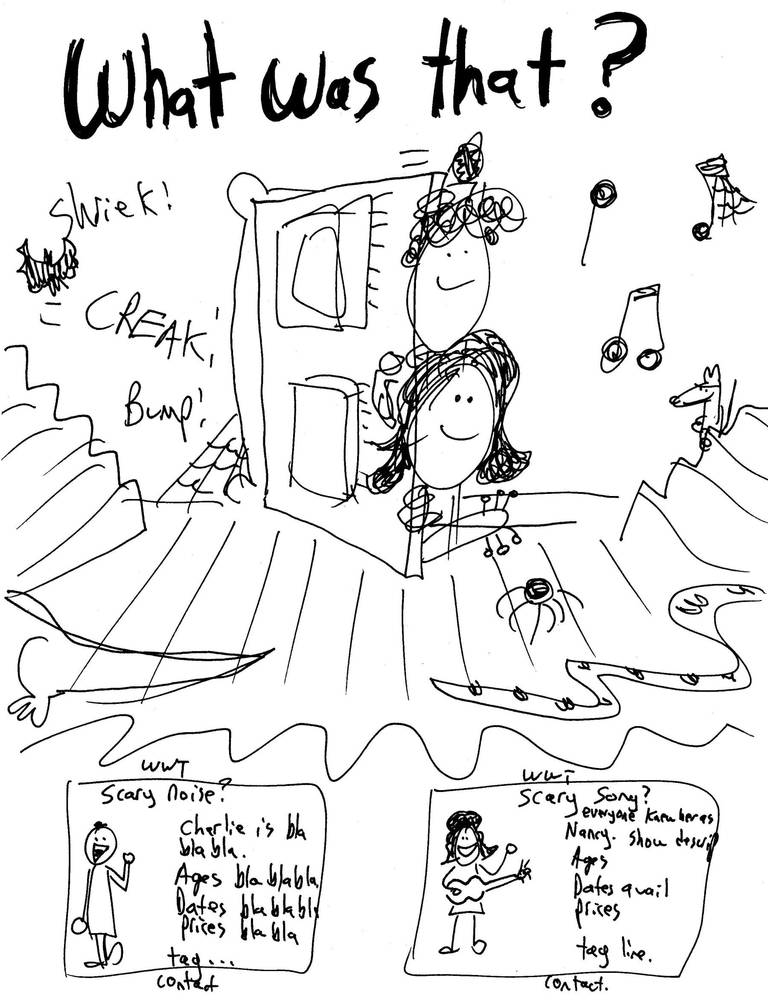 What was that?
SHriek!
CREAK!
Bump!
WWT
Scary Noise?
Charlie is bla
bla bla.
Ages bla bla bla
Dates bla bla bla
Prices bla bla
tag...
contact
WWT
Scary Song?
everyone knew her as
Nancy. Show descrip
Ages
Dates avail
Prices
tag line.
contact.